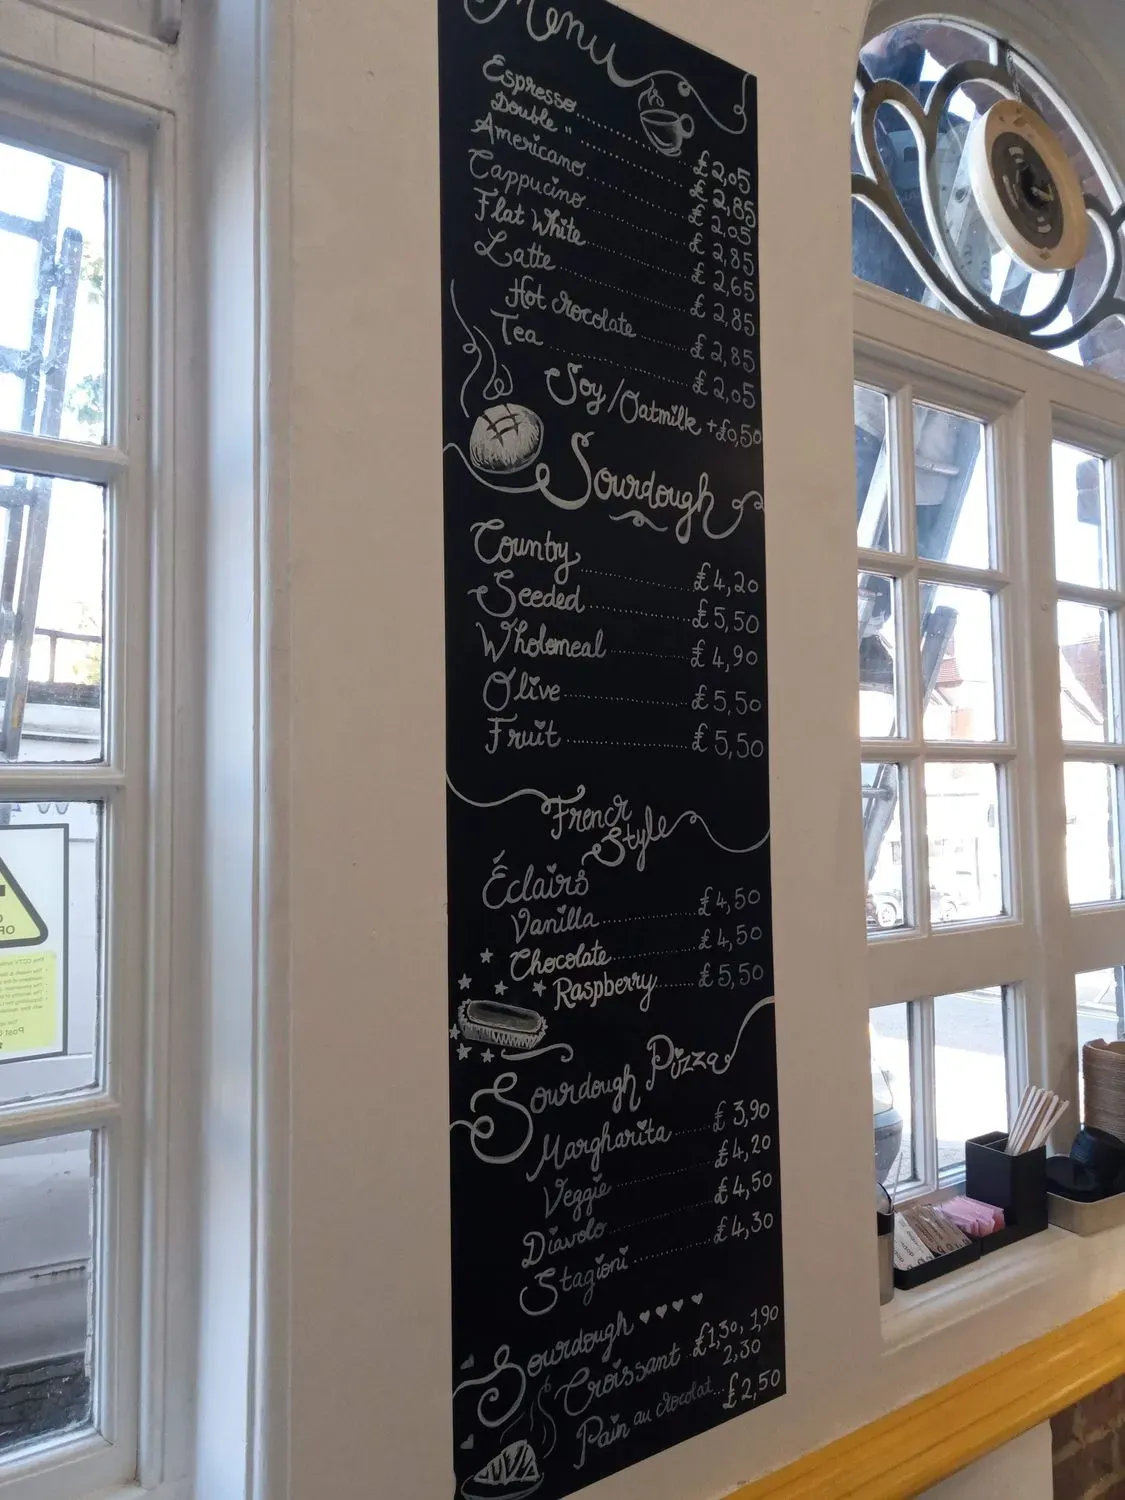 Menu
Espresso ... £2,05
Double " ... £2,85
Americano ... £2,05
Cappucino ... £2,85
Flat White ... £2,65
Latte ... £2,85
Hot chocolate ... £2,85
Tea ... £2,05
Soy/Oatmilk +£0,50
Sourdough
Country ... £4,20
Seeded ... £5,50
Wholemeal ... £4,90
Olive ... £5,50
Fruit ... £5,50
French
Style
Éclairs
Vanilla ... £4,50
Chocolate ... £4,50
Raspberry ... £5,50
Sourdough Pizza
Margharita ... £3,90
Veggie ... £4,20
Diavolo ... £4,50
Stagioni ... £4,30
Sourdough
Croissant ... £1,30, 1,90
2,30
Pain au chocolat ... £2,50